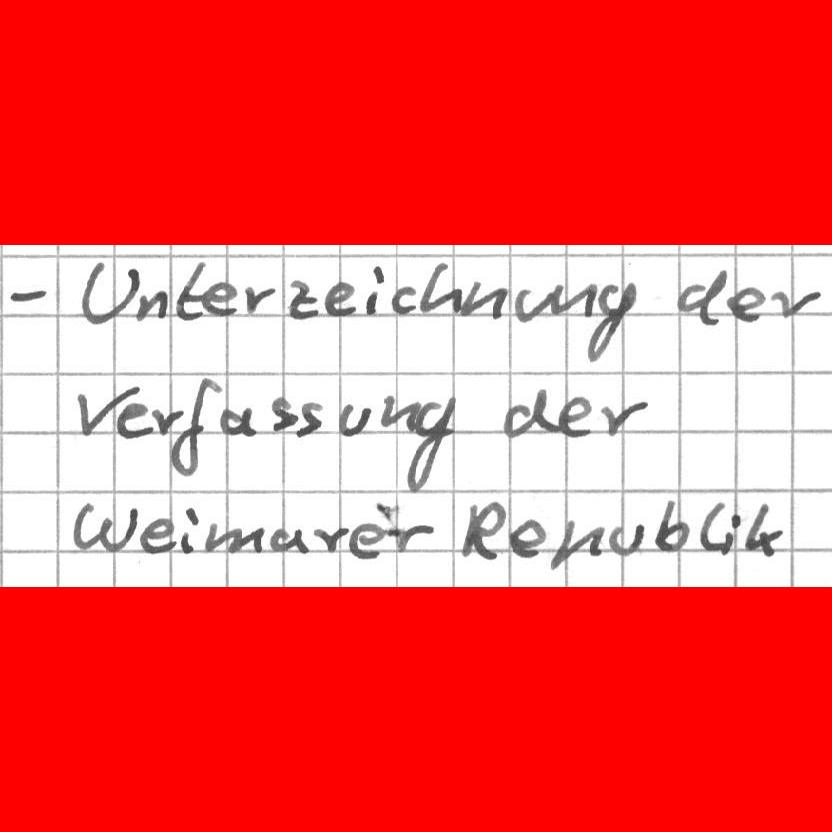 - Unterzeichnung der
Verfassung der
Weimarer Republik